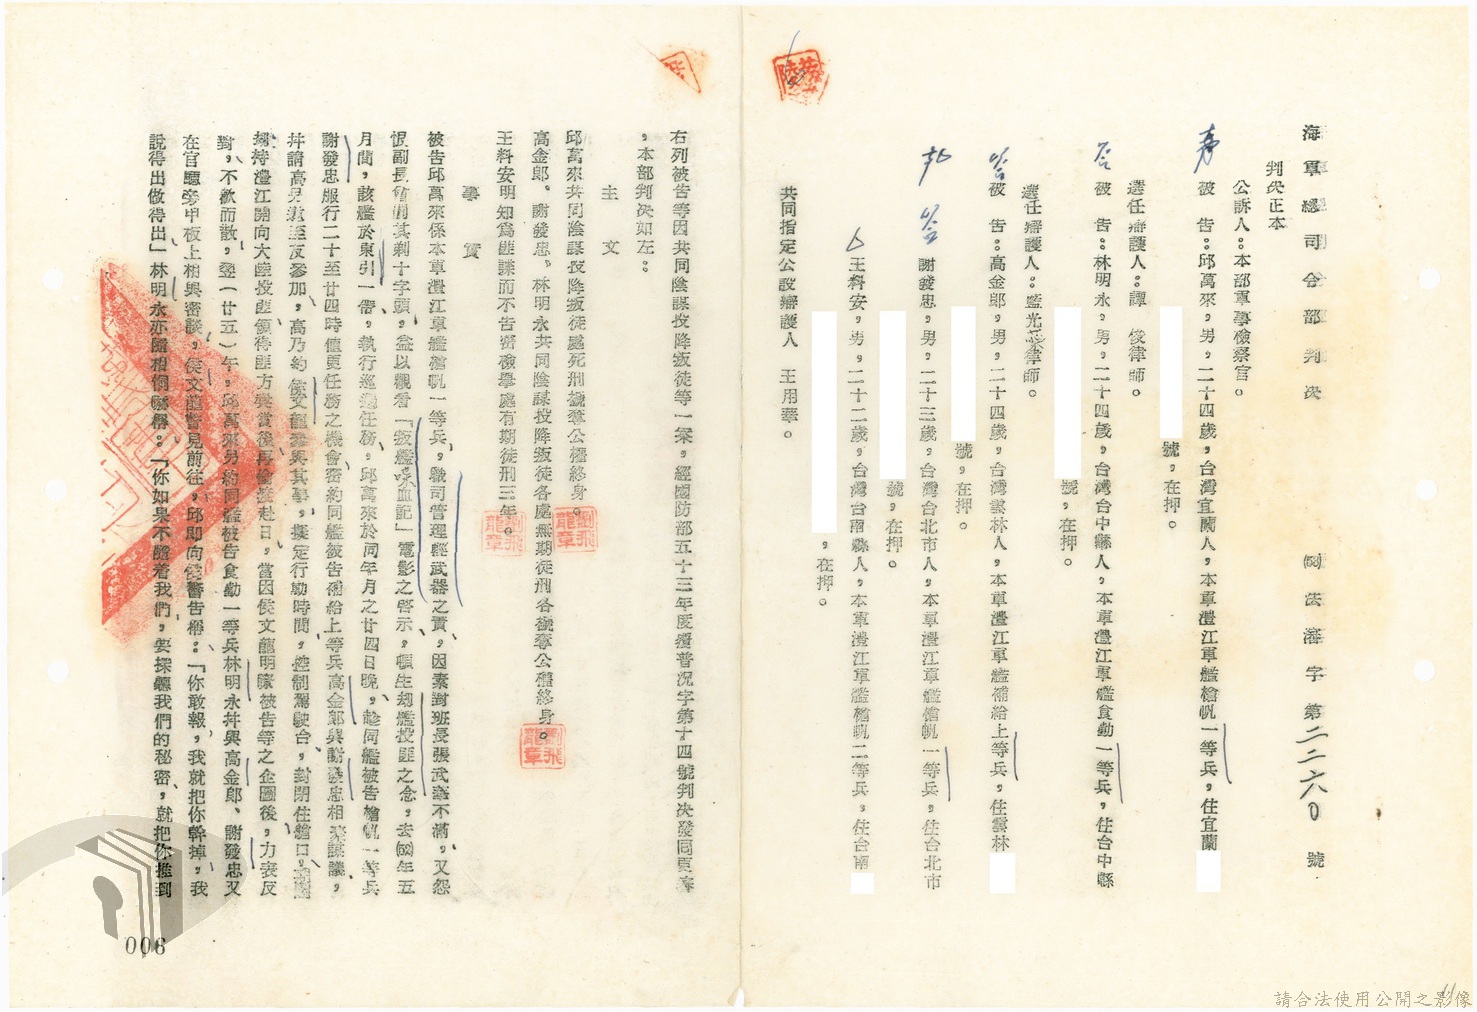 海軍總司令部判決
法審字第二二六〇號
判決正本
公訴人：本部軍事檢察官。
被告：邱萬來，男，二十四歲，台灣宜蘭人，本軍澧江軍艦槍帆一等兵，住宜蘭
號，在押。
選任辯護人：譚 俊律師。
被告：林明永，男，二十四歲，台灣台中縣人，本軍澧江軍艦食勤一等兵，住台中縣
號，在押。
選任辯護人：藍光 律師。
被告：高金郎，男，二十四歲，台灣雲林人，本軍澧江軍艦補給上等兵，住雲林
號，在押。
謝發忠，男，二十三歲，台灣台北市人，本軍澧江軍艦槍帆一等兵，住台北市
號，在押。
王科安，男，二十二歲，台灣台南縣人，本軍澧江軍艦槍帆二等兵，住台南
，在押。
共同指定公設辯護人 王用華。
右列被告等因共同陰謀投降叛徒等一案，經國防部五十三年度覆普況字第十四號判決發回更審
，本部判決如左：
主文
邱萬來共同陰謀投降叛徒處死刑褫奪公權終身。
高金郎、謝發忠、林明永共同陰謀投降叛徒各處無期徒刑各褫奪公權終身。
王科安明知為匪諜而不告密檢舉處有期徒刑三年。
劉飛龍章
劉飛龍章
劉飛龍章
事實
被告邱萬來係本軍澧江軍艦槍帆一等兵，職司管理輕武器之責，因素對班長張武 不滿，又怨
恨副長 其剃十字頭，益以觀看「叛艦喋血記」電影之啓示，頓生刼艦投匪之念，去 年五
月間，該艦於東引一帶，執行巡邏任務，邱萬來於同年月之廿四日晚，趁同艦被告槍帆一等兵
謝發忠服行二十至廿四時值更任務之機會密約同艦被告補給上等兵高金郎與謝發忠相 謀議，
并請高另邀至友參加，高乃約侯文龍參與其事，擬定行動時間，控制駕駛台，封閉住艙口，
刼持澧江開向大陸投匪領得匪方獎賞後再 赴日，當因侯文龍明瞭被告等之企圖後，力表反
對，不歡而散，翌（廿五）午，邱萬來另約同艦被告食勤一等兵林明永并與高金郎、謝發忠又
在官廳旁甲板上相與密談，侯文龍瞥見前往，邱即向侯警告稱：「你敢報，我就把你幹掉，我
說得出做得出」林明永亦隨相恫嚇稱：「你如果不隨着我們，要探聽我們的秘密，就把你推到
006
請合法使用公開之影像